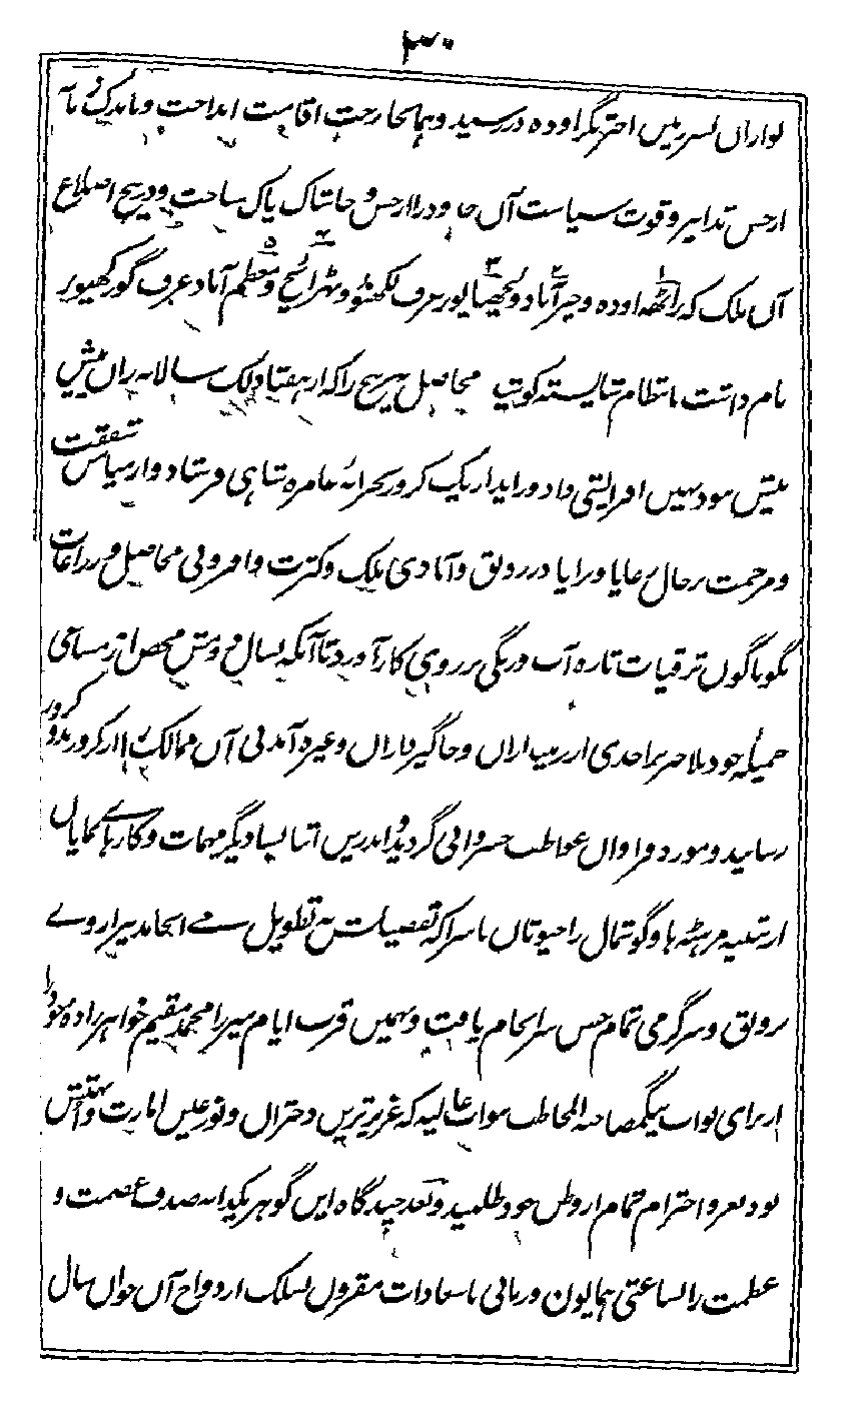 ۳۰
نواران بسرزمین اختر نگر اوده در رسید و همانجا رحت اقامت انداخت و باندک
از حسن تدابیر و قوت سیاست آن حا و در از خس و خاشاک پاک ساخت و در پنج اضلاع
آن ملک که اوده و خیرآباد و لچهنا پور عرف لکهنؤ و بهرائچ و معظم آباد عرف گورکهپور
نام داشت بانتظام شایسته کوشید محاصل هر پنج را که از هفتاد لک سالانه بران بیش
بیش نبود بهین افزایشی داد و زاید از یک کرور بخزانه عامره شاهی فرستاد و از سپاس شفقت
و مرحمت بر حال رعایا و برایا در رونق و آبادی ملک و کثرت و افزونی محاصل و زراعات
گوناگون ترقیات تازه آب و رنگی بر روی کار آورد تا آنکه بسال دومش محض از مساعی
جمیله خود بلا ضرر احدی از زمینداران و جاگیرداران و غیره آمدنی آن ممالک را از کرور بدو کرور
رسانید و مورد فراوان عواطف خسروانی گردید و اندرین اثنا بسا دیگر مهمات و کارهای نمایان
از تنبیه مرهٹه ها و گوشمال راجپوتان ناسزا که تفصیلش به تطویل می انجامد بر از روے
رونق و سرگرمی تمام حسن سرانجام یافت و بهمین قرب ایام میرزا محمد مقیم خواهرزاده خود را
از برای نواب بیگم صاحبه المخاطب بنواب عالیه که عزیزترین دختران و نور عین امارت و ابهتش
بود بعز و احترام تمام از وطن خود طلبید و بعد چندگاه این گوهر یکدانه صدف عصمت و
عظمت را بساعتی همایون و زمانی با سعادات مقرون بسلک ازدواج آن جوان سال